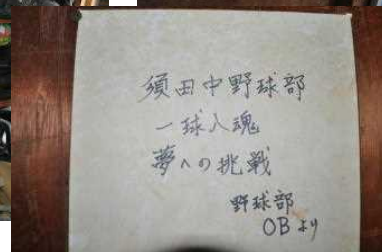 須田中野球部
一球入魂
夢への挑戦
野球部
OBより